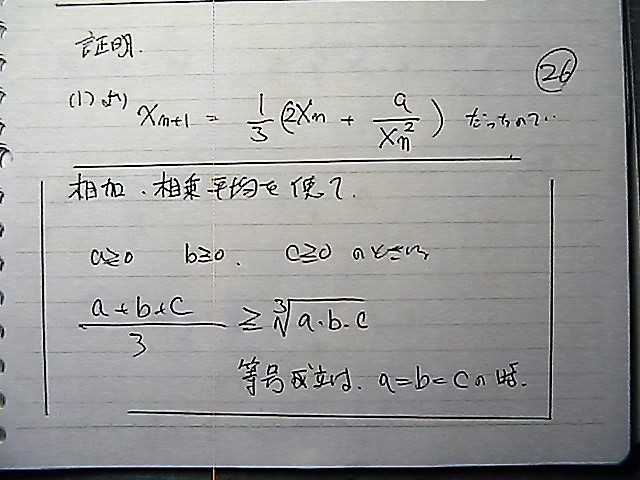 証明.
26
(1)より Xn+1 = 1/3 (2Xn + a/Xn²) だったので..
相加・相乗平均を使て.
a≥0 b≥0. c≥0 のときに
(a+b+c)/3 ≥ ∛(a・b・c)
等号成立は. a=b=cの時.